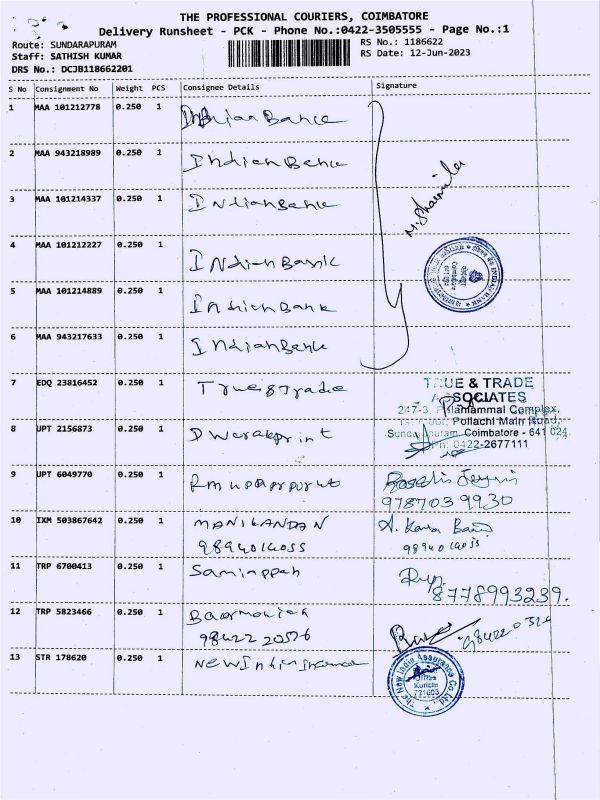 THE PROFESSIONAL COURIERS, COIMBATORE
Delivery Runsheet - PCK - Phone No.:0422-3505555 - Page No.:1
Route: SUNDARAPURAM
RS No.: 1186622
Staff: SATHISH KUMAR
RS Date: 12-Jun-2023
DRS No.: DCJB118662201
S No Consignment No Weight PCS Consignee Details Signature
1 MAA 101212778 0.250 1 Indian Bank
2 MAA 943218989 0.250 1 Indian Bank
3 MAA 101214337 0.250 1 Indian Bank
M. Sharmila
4 MAA 101212227 0.250 1 Indian Bank
INDIAN BANK
5 MAA 101214889 0.250 1 Indian Bank
6 MAA 943217633 0.250 1 Indian Bank
7 EDQ 23816452 0.250 1 True & Trade
TRUE & TRADE
ASSOCIATES
247-3, Complex,
Pollachi Main Road,
Coimbatore - 641 024.
Ph: 0422-2677111
8 UPT 2156873 0.250 1
9 UPT 6049770 0.250 1
9787039930
10 IXM 503867642 0.250 1 MANIKANDAN
98940 14055
98940 14055
11 TRP 6700413 0.250 1
8778993239.
12 TRP 5823466 0.250 1
98422
13 STR 178620 0.250 1 New India
The New India Assurance Co. Ltd.
Office
Kurichi
721603